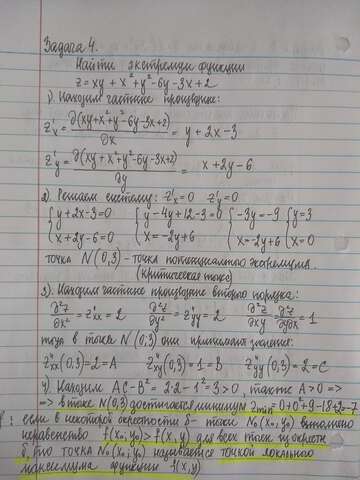 Задача 4.
Найти экстремум функции
z = xy + x² + y² - 6y - 3x + 2
1) Находим частные производные:
z'ₓ = ∂(xy + x² + y² - 6y - 3x + 2)/∂x = y + 2x - 3
z'ᵧ = ∂(xy + x² + y² - 6y - 3x + 2)/∂y = x + 2y - 6
2). Решаем систему: z'ₓ = 0 z'ᵧ = 0
{y + 2x - 3 = 0 {y - 4y + 12 - 3 = 0 {-3y = -9 {y = 3
{x + 2y - 6 = 0 {x = -2y + 6 {x = -2y + 6 {x = 0
точка N(0,3) - точка потенциального экстремума.
(критическая точка)
3). Находим частные производные второго порядка:
∂²z/∂x² = z''xx = 2 ∂²z/∂y² = z''yy = 2 ∂²z/∂xy = ∂²z/∂y∂x = 1
тогда в точке N(0,3) они принимают значение:
z''xx(0,3) = 2 = A z''xy(0,3) = 1 = B z''yy(0,3) = 2 = C
4) Находим AC - B² = 2·2 - 1² = 3 > 0, так как A > 0 =>
=> в точке N(0,3) достигается минимум zmin = 0 + 0² + 9 - 18 + 2 = -7
: если в некоторой окрестности δ - точки N₀(x₀, y₀) выполнено
неравенство f(x₀, y₀) > f(x, y) для всех точек из окрестн.
δ, то точка N₀(x₀, y₀) называется точкой локального
максимума функции f(x, y)